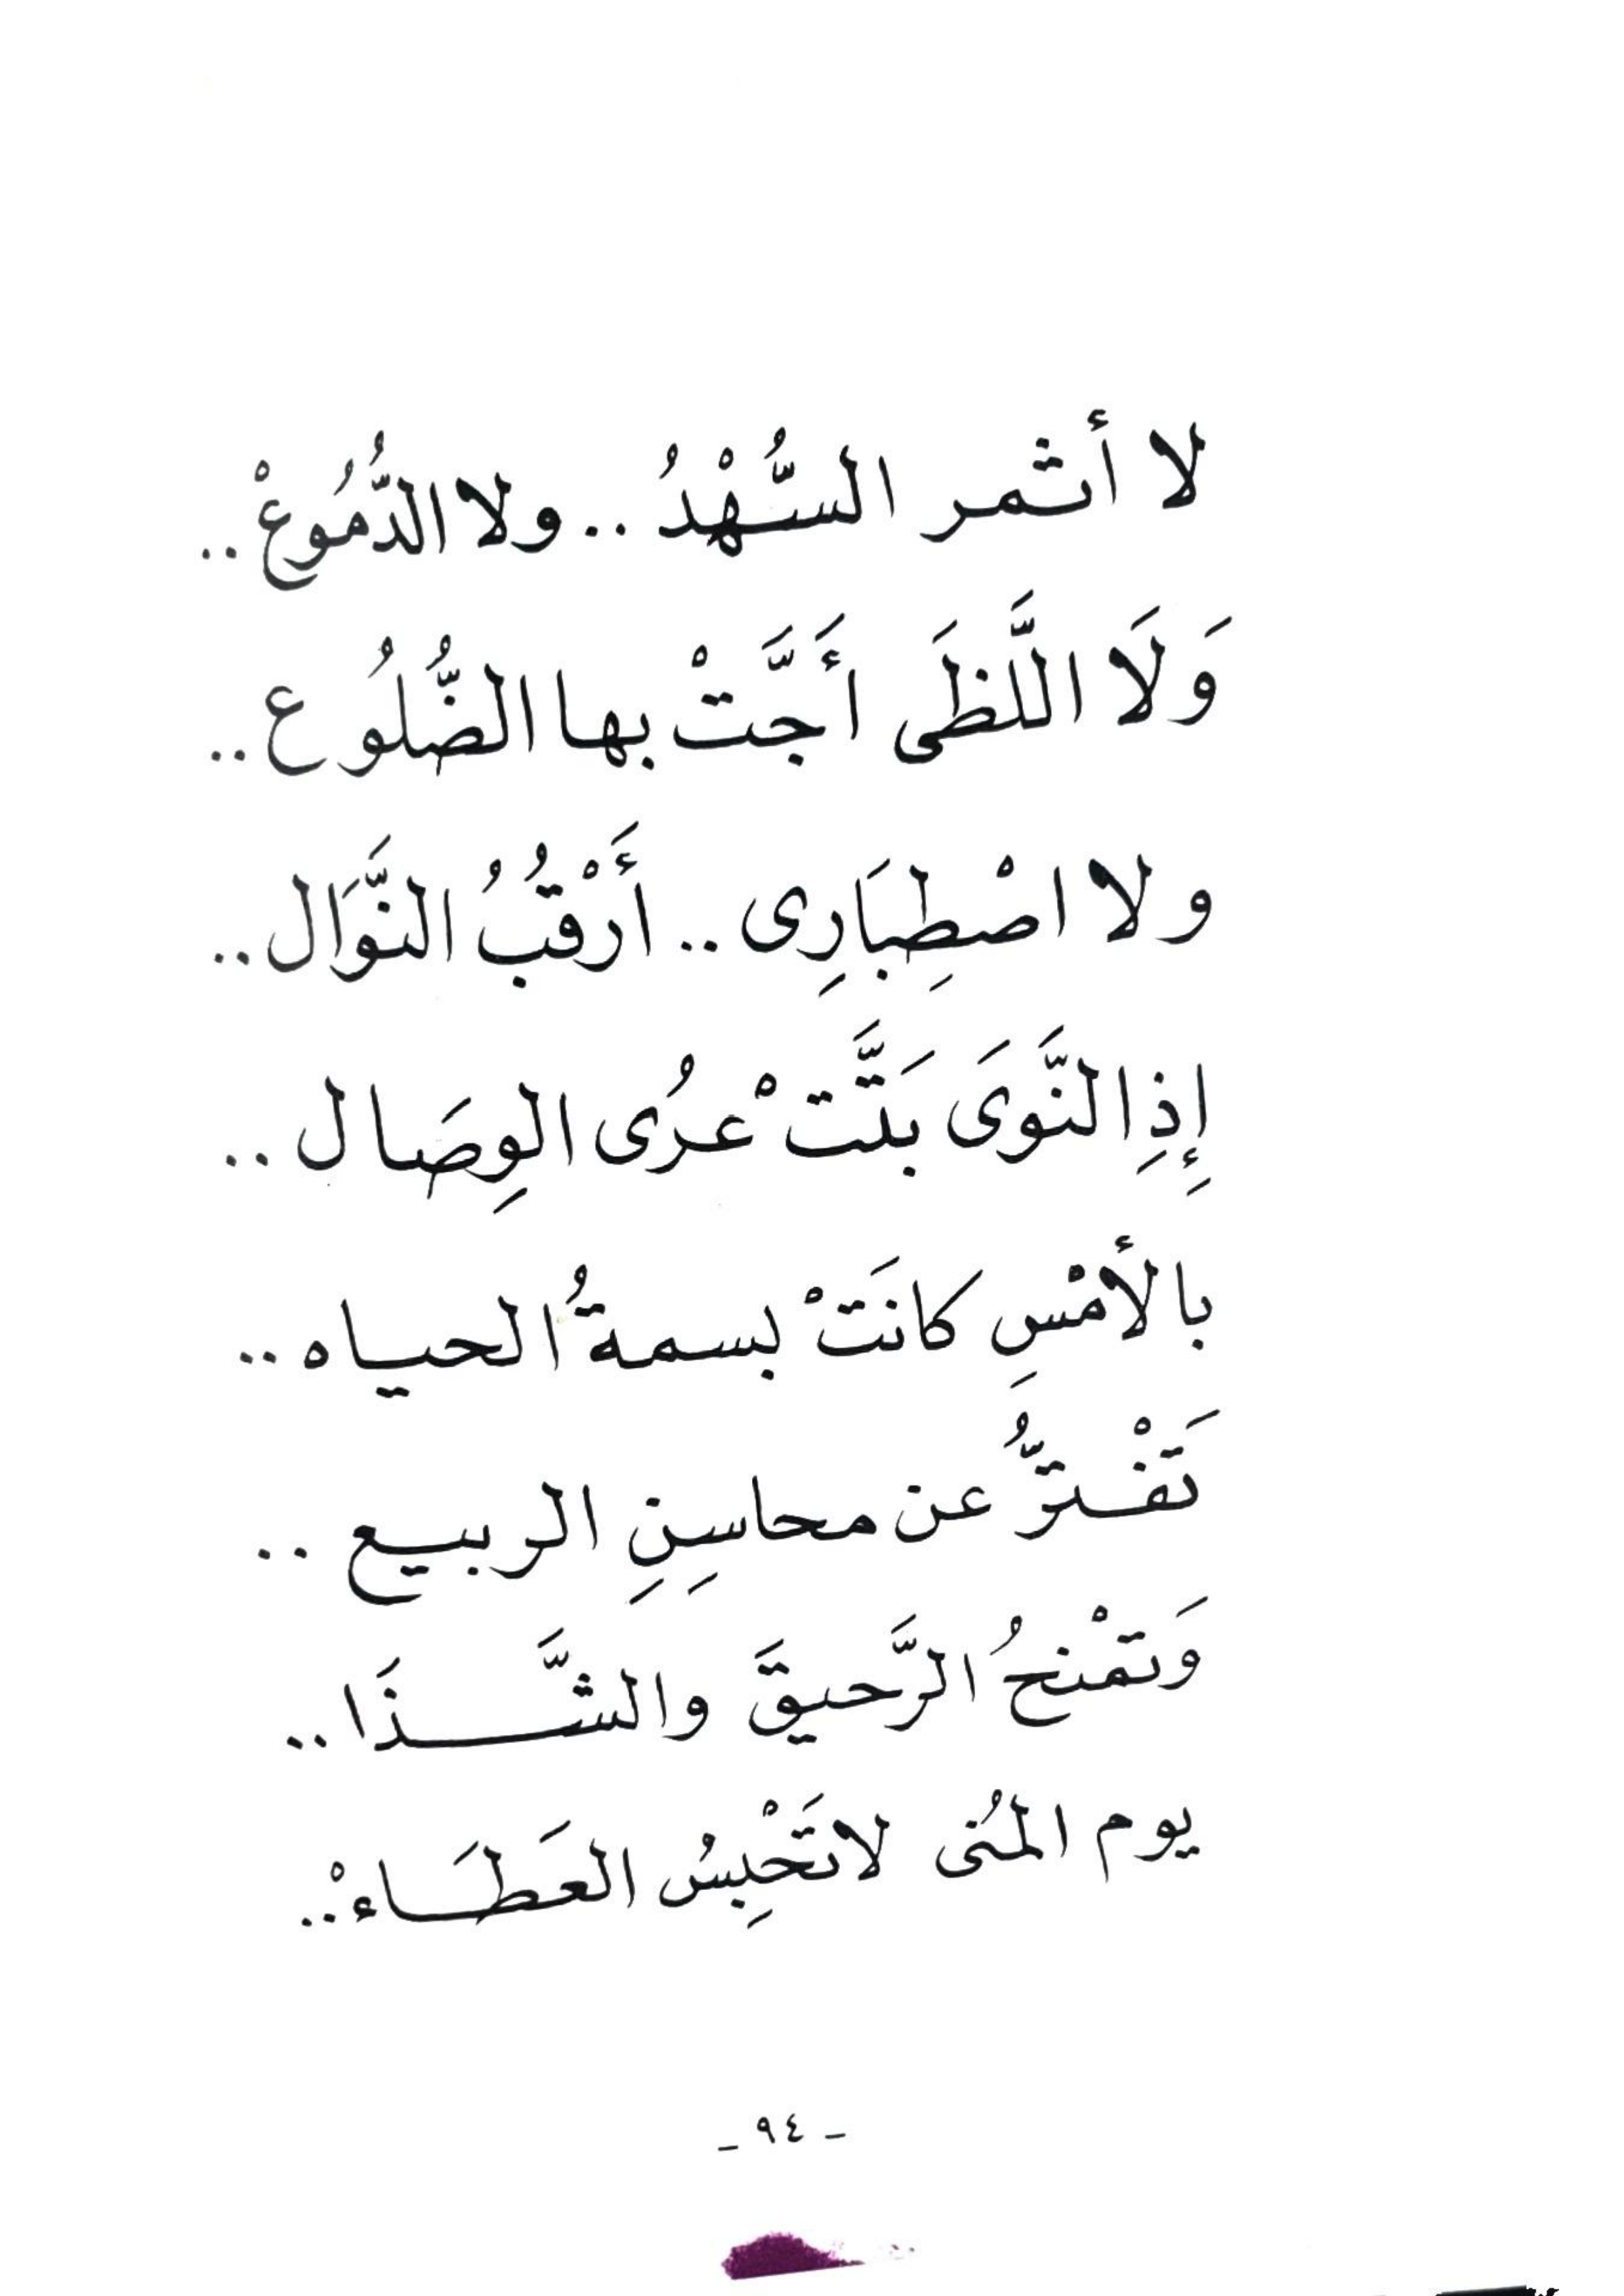 لا أثمر السُّهْدُ .. ولا الدُّمُوعْ ..
وَلَا اللَّظَى أَجَّتْ بها الضُّلُوع ..
ولا اصْطِبَارِى .. أَرْقُبُ النَّوَال ..
إِذِ النَّوَى بَتَّتْ عرُى الوِصَال ..
بالأمْسِ كانَتْ بسمةُ الحياه ..
تَفْترُّ عن محاسِنِ الربيع ..
وَتمْنحُ الرَّحيقَ والشَّذَا ..
يوم المنُى لا تَحْبِسُ العَطَاءْ ..
- ٩٤ -